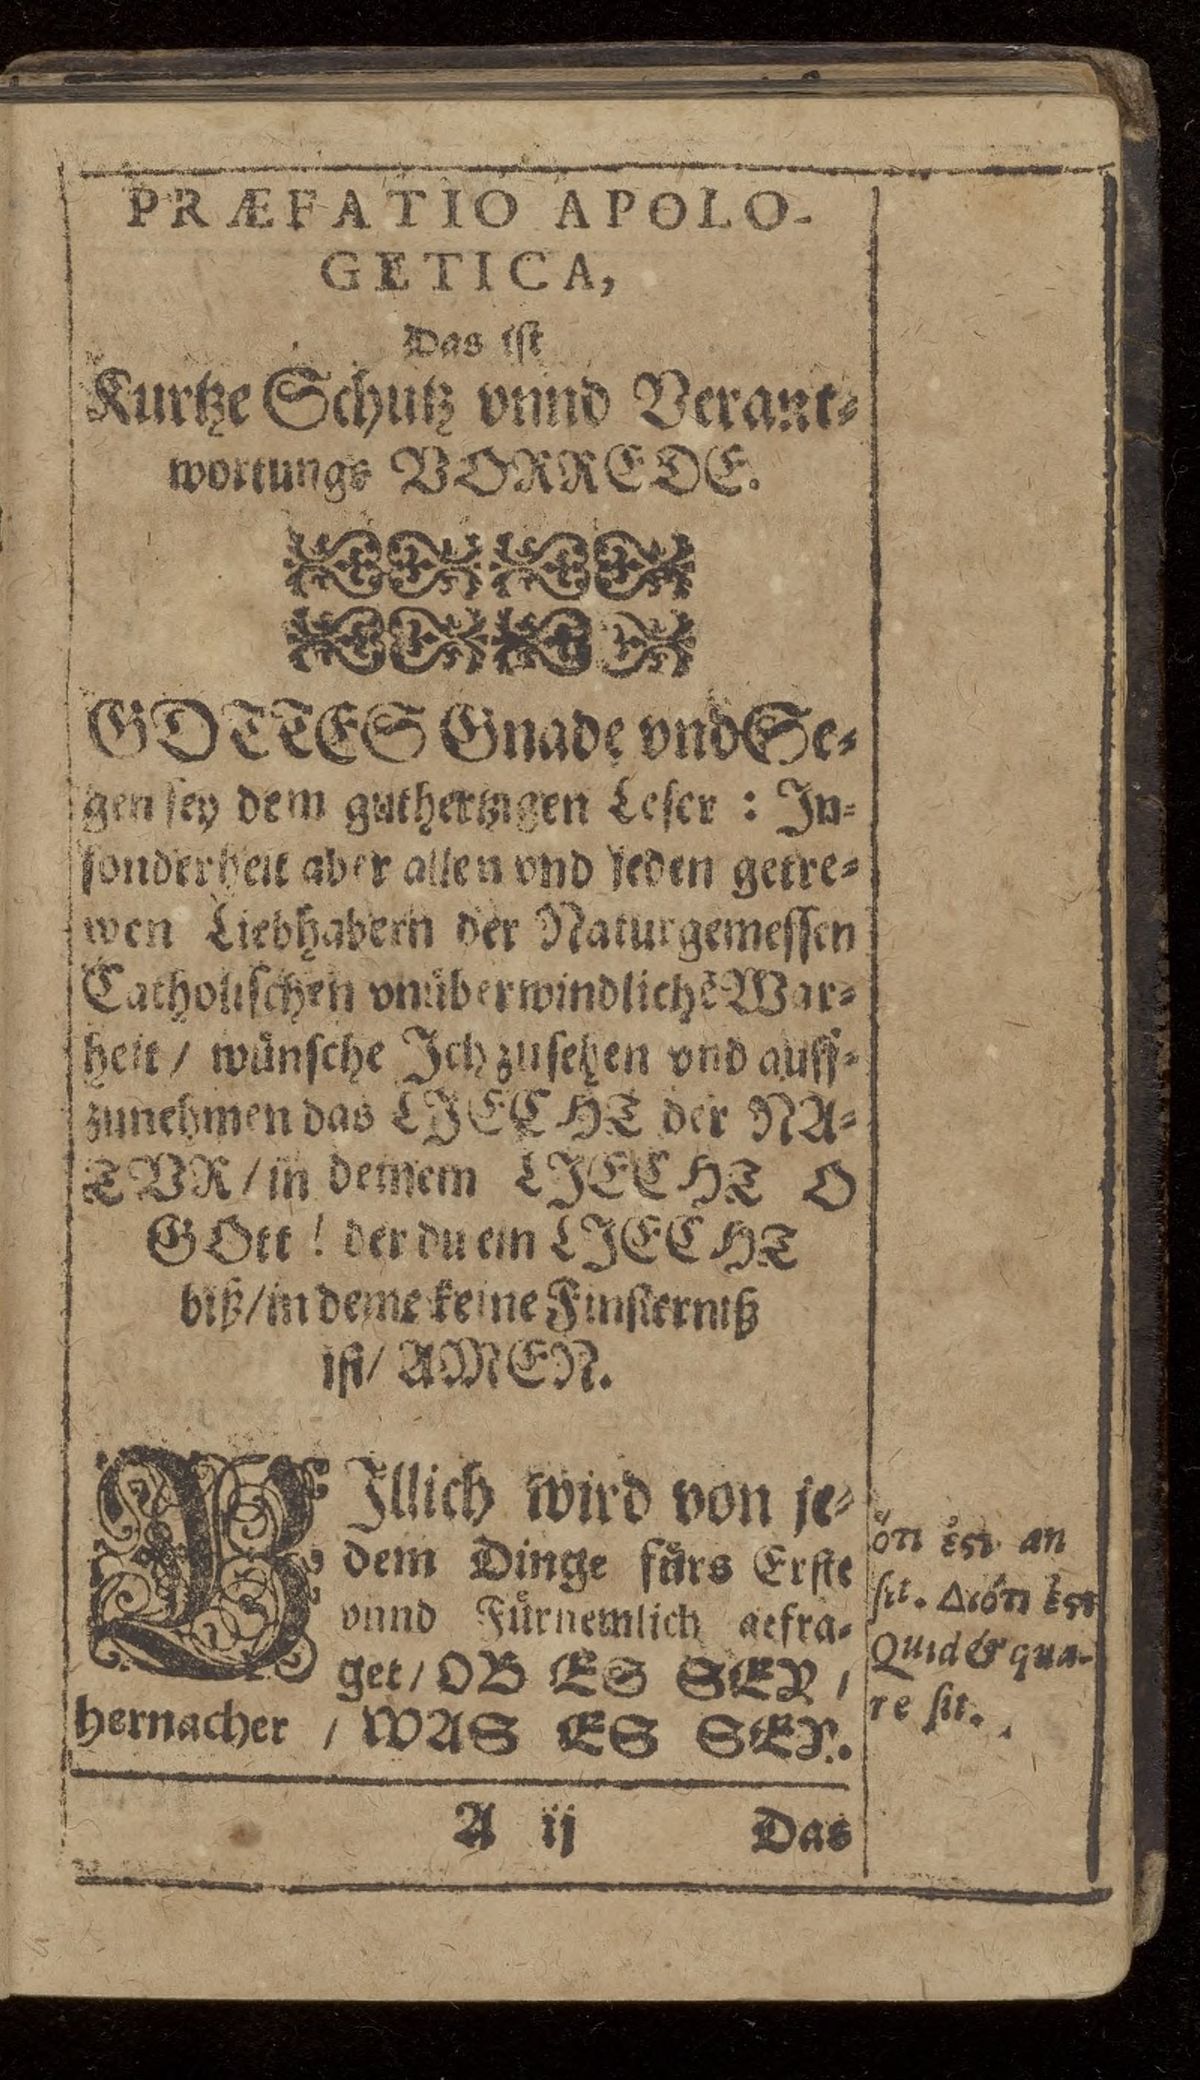 PRÆFATIO APOLO-
GETICA,
Das ist
Kurtze Schutz vnnd Verant-
wortungs VORREDE.
GOTTES Gnade vnd Se-
gen sey dem guthertzigen Leser : In-
sonderheit aber allen vnd jeden getre-
wen Liebhabern der Naturgemessen
Catholischen vnüberwindlichē War-
heit / wünsche Ich zusehen vnd auff-
zunehmen das LIECHT der NA-
TVR / in deinem LIECHT O
GOtt ! der du ein LIECHT
biß / in deme keine Finsterniß
ist / AMEN.
BIllich wird von je-
dem Dinge fürs Erste
vnnd Fürnemlich gefra-
get / OB ES SEY /
hernacher / WAS ES SEY.
ὅτι ἐςι an
sit. Διότι ἐςι
Quid & qua-
re sit.
A ij Das